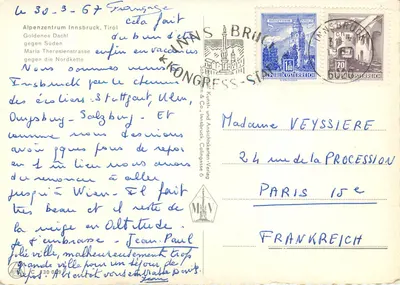 le 30-3-67 Françoise
Alpenzentrum Innsbruck, Tirol
Goldenes Dachl
gegen Süden
Maria Theresienstrasse
gegen die Nordkette
cela fait
du bien d'être
enfin en vacances
Nous sommes venus à
Innsbruck par le chemin
des écoliers - Stuttgart, Ulm,
Augsburg - Salzburg - Et
comme nous devrions
avoir jours de repos
en T in lieu nous avons
du renoncer à aller
jusqu'à Wien - Il fait
très beau et il reste de
la neige en Altitude.
Je t'embrasse - Jean-Paul
Jolie ville, malheureusement trop
grande ville pour un séjour de
repos. A bientôt vous embrasse
INNSBRUCK
KONGRESS-STADT
INNSBRUCK
6020
REPUBLIK ÖSTERREICH
Madame VEYSSIERE
24 rue de la PROCESSION
PARIS 15e
FRANKREICH